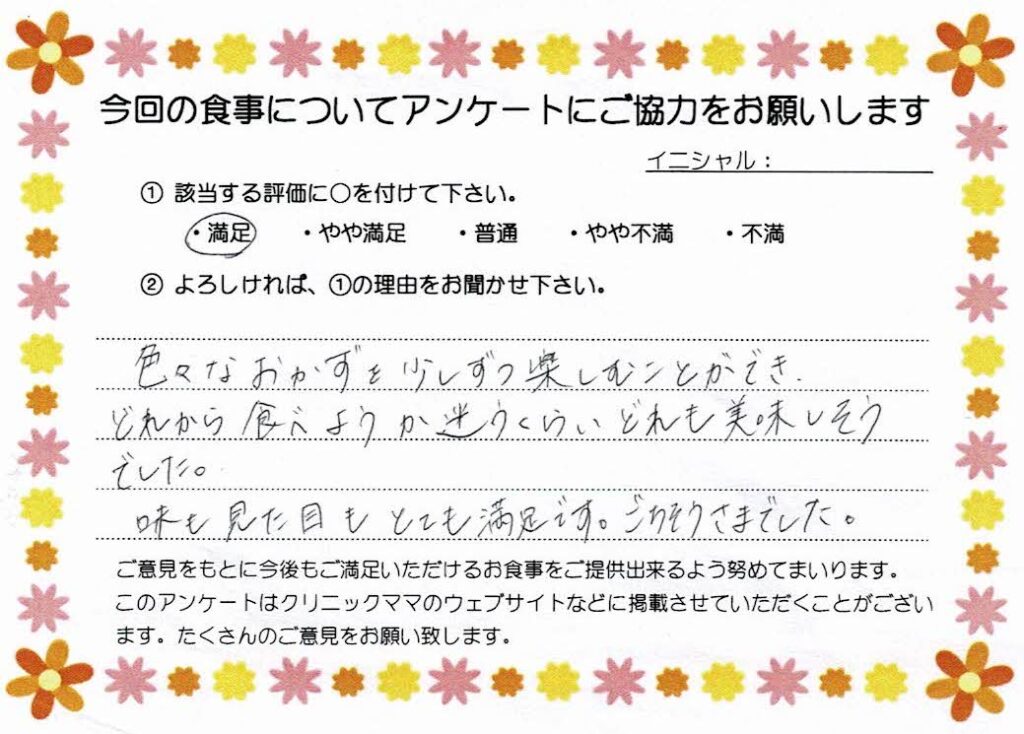 今回の食事についてアンケートにご協力をお願いします
イニシャル：
① 該当する評価に〇を付けて下さい。
・満足 ・やや満足 ・普通 ・やや不満 ・不満
② よろしければ、①の理由をお聞かせ下さい。
色々なおかずを少しずつ楽しむことができ、
どれから食べようか迷うくらいどれも美味しそう
でした。
味も見た目もとても満足です。ごちそうさまでした。
ご意見をもとに今後もご満足いただけるお食事をご提供出来るよう努めてまいります。
このアンケートはクリニックママのウェブサイトなどに掲載させていただくことがござい
ます。たくさんのご意見をお願い致します。